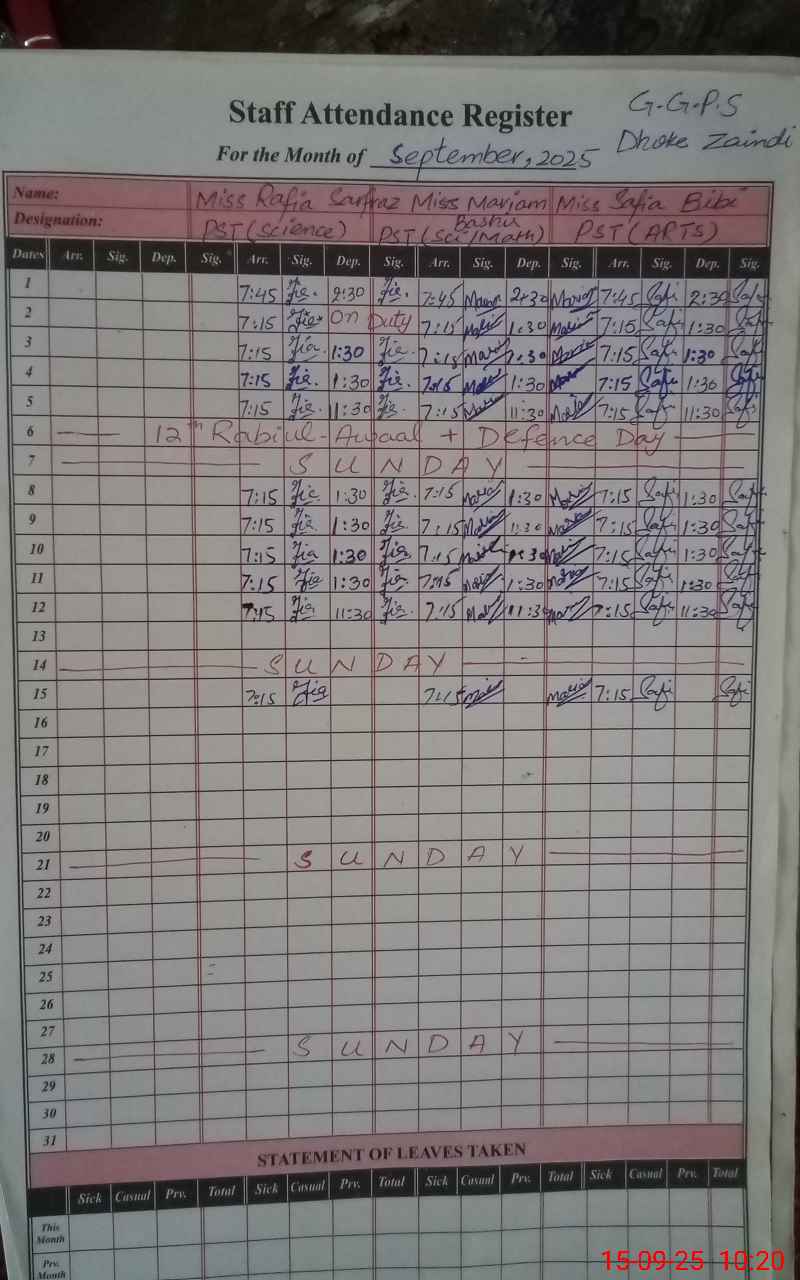 Staff Attendance Register
G.G.P.S
Dhoke Zaindi
For the Month of September, 2025
Name: Miss Rafia Sarfraz Miss Mariam Bashir Miss Safia Bibi
Designation: PST (Science) PST (Sci/Math) PST (ARTs)
Dates Arr. Sig. Dep. Sig. Arr. Sig. Dep. Sig. Arr. Sig. Dep. Sig. Arr. Sig. Dep. Sig.
1 7:45 Fia. 2:30 Fia. 7:45 2:30 7:45 Safi 2:30 Safi
2 7:15 Fia On Duty 7:15 1:30 7:15 Safi 1:30 Safi
3 7:15 Fia 1:30 Fia 7:15 1:30 7:15 Safi 1:30 Safi
4 7:15 Fia. 1:30 Fia. 7:15 1:30 7:15 Safi 1:30 Safi
5 7:15 Fia. 11:30 Fia. 7:15 11:30 7:15 Safi 11:30 Safi
6 12th Rabiul-Awaal + Defence Day
7 SUNDAY
8 7:15 Fia 1:30 Fia. 7:15 1:30 7:15 Safi 1:30 Safi
9 7:15 Fia 1:30 Fia. 7:15 1:30 7:15 Safi 1:30 Safi
10 7:15 Fia 1:30 Fia 7:15 1:30 7:15 Safi 1:30 Safi
11 7:15 Fia 1:30 Fia. 7:15 1:30 7:15 Safi 1:30 Safi
12 7:15 Fia 11:30 Fia. 7:15 11:30 7:15 Safi 11:30 Safi
13
14 SUNDAY
15 7:15 Fia 7:15 7:15 Safi Safi
16
17
18
19
20
21 SUNDAY
22
23
24
25
26
27
28 SUNDAY
29
30
31
STATEMENT OF LEAVES TAKEN
Sick Casual Prv. Total Sick Casual Prv. Total Sick Casual Prv. Total Sick Casual Prv. Total
This Month
Prv. Month
15-09-25 10:20